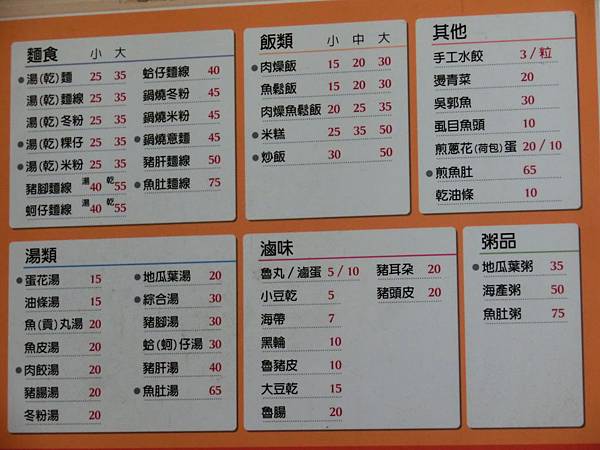 麵食 小 大
●湯(乾)麵 25 35
湯(乾)麵線 25 35
湯(乾)冬粉 25 35
●湯(乾)粿仔 25 35
●湯(乾)米粉 25 35
豬腳麵線 湯40 乾55
蚵仔麵線 湯40 乾55
蛤仔麵線 40
鍋燒冬粉 45
鍋燒米粉 45
●鍋燒意麵 45
豬肝麵線 50
●魚肚麵線 75
飯類 小 中 大
●肉燥飯 15 20 30
魚鬆飯 15 20 30
肉燥魚鬆飯 20 25 35
●米糕 25 35 50
●炒飯 30 50
其他
手工水餃 3/粒
燙青菜 20
吳郭魚 30
虱目魚頭 10
煎蔥花(荷包)蛋 20/10
●煎魚肚 65
乾油條 10
湯類
●蛋花湯 15
油條湯 15
魚(貢)丸湯 20
魚皮湯 20
●肉餃湯 20
豬腸湯 20
冬粉湯 20
●地瓜葉湯 20
●綜合湯 30
豬腳湯 30
蛤(蚵)仔湯 30
豬肝湯 40
●魚肚湯 65
滷味
魯丸/滷蛋 5/10
小豆乾 5
海帶 7
黑輪 10
魯豬皮 10
大豆乾 15
魯腸 20
豬耳朵 20
豬頭皮 20
粥品
●地瓜葉粥 35
海產粥 50
魚肚粥 75